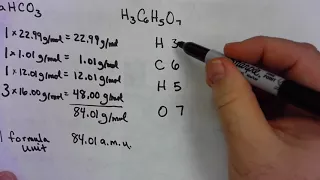 aHCO₃
H₃C₆H₅O₇
1 × 22.99 g/mol = 22.99 g/mol
1 × 1.01 g/mol = 1.01 g/mol
1 × 12.01 g/mol = 12.01 g/mol
3 × 16.00 g/mol = 48.00 g/mol
84.01 g/mol
1 formula unit 84.01 a.m.u.
H 3
C 6
H 5
O 7